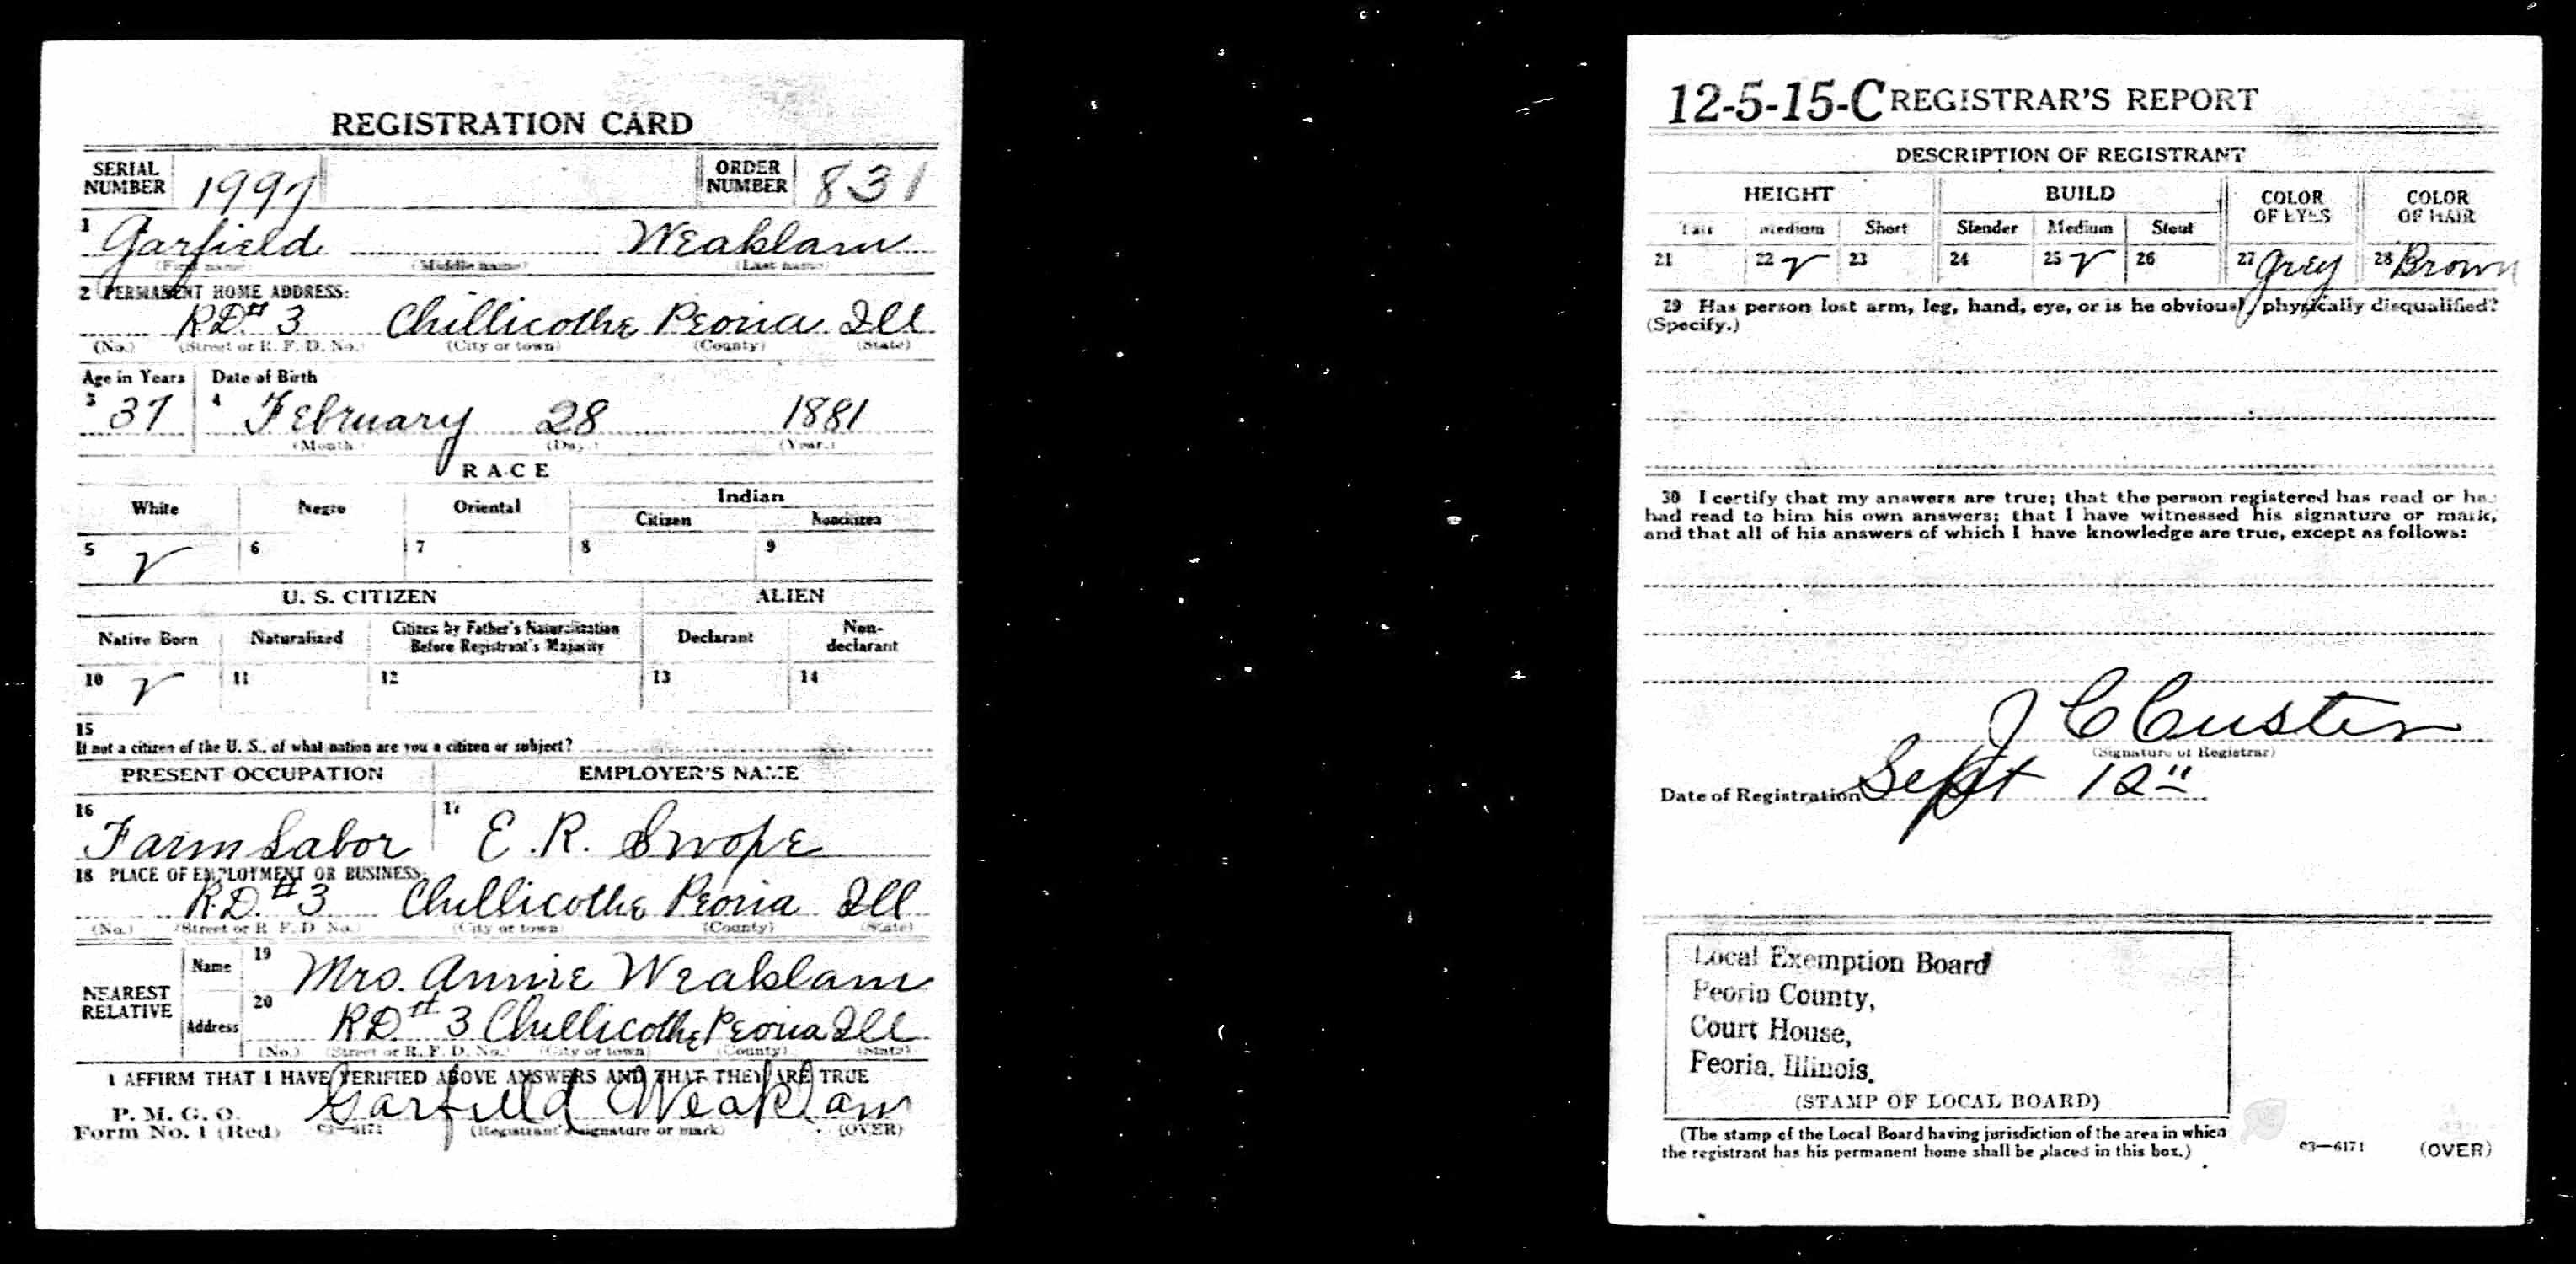 REGISTRATION CARD
SERIAL NUMBER 1997 ORDER NUMBER 831
1 Garfield Weaklam
(First name) (Middle name) (Last name)
2 PERMANENT HOME ADDRESS:
RD# 3 Chillicothe Peoria Ill
(No.) (Street or R. F. D. No.) (City or town) (County) (State)
Age in Years Date of Birth
3 37 4 February 28 1881
(Month) (Day.) (Year.)
RACE
White Negro Oriental Indian
Citizen Noncitizen
5 V 6 7 8 9
U. S. CITIZEN ALIEN
Native Born Naturalized Citizen by Father's Naturalization Before Registrant's Majority Declarant Non-declarant
10 V 11 12 13 14
15
If not a citizen of the U. S., of what nation are you a citizen or subject?
PRESENT OCCUPATION EMPLOYER'S NAME
16 Farm Labor 17 E. R. Swope
18 PLACE OF EMPLOYMENT OR BUSINESS:
R.D. #3 Chillicothe Peoria Ill
(No.) (Street or R. F. D. No.) (City or town) (County) (State)
NEAREST RELATIVE Name 19 Mrs. Annie Weaklam
Address 20 RD# 3 Chillicothe Peoria Ill
(No.) (Street or R. F. D. No.) (City or town) (County) (State)
I AFFIRM THAT I HAVE VERIFIED ABOVE ANSWERS AND THAT THEY ARE TRUE
P. M. G. O.
Form No. 1 (Red) 03—6171 Garfield Weaklam
(Registrant's signature or mark) (OVER)
12-5-15-C REGISTRAR'S REPORT
DESCRIPTION OF REGISTRANT
HEIGHT BUILD COLOR OF EYES COLOR OF HAIR
Tall Medium Short Slender Medium Stout
21 22 V 23 24 25 V 26 27 Grey 28 Brown
29 Has person lost arm, leg, hand, eye, or is he obviously physically disqualified?
(Specify.)
30 I certify that my answers are true; that the person registered has read or has
had read to him his own answers; that I have witnessed his signature or mark,
and that all of his answers of which I have knowledge are true, except as follows:
J C Custer
(Signature of Registrar)
Date of Registration Sept 12"
Local Exemption Board
Peoria County,
Court House,
Peoria, Illinois.
(STAMP OF LOCAL BOARD)
(The stamp of the Local Board having jurisdiction of the area in which
the registrant has his permanent home shall be placed in this box.)
03—6171 (OVER)